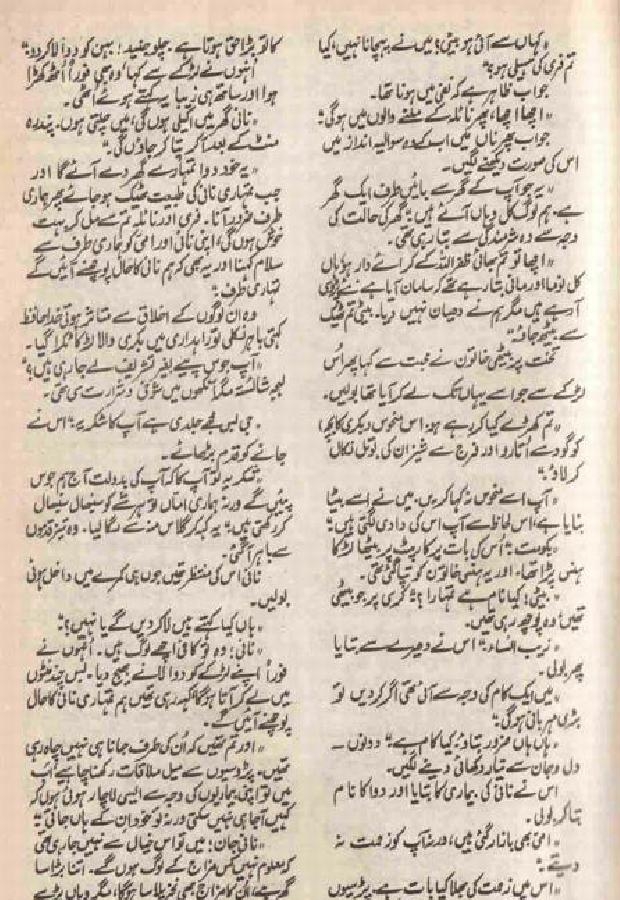 "کہاں سے آئی ہو بیٹی؟ میں نے پہچانا نہیں، کیا
تم فری کی سہیلی ہو؟"
جواب ظاہر ہے کہ نفی میں ہونا تھا۔
"اچھا اچھا، پھر نائلہ کے ملنے والوں میں ہوگی؟"
جواب پھر ناں میں اب کے وہ سوالیہ انداز میں
اس کی صورت دیکھنے لگیں۔
"یہ جو آپ کے گھر سے بائیں طرف ایک گھر
ہے۔ ہم لوگ کل وہاں آئے ہیں؟" گھر کی حالت کی
وجہ سے وہ شرمندگی سے بتا رہی تھی۔
"اچھا تو تم بھائی ظفر اللہ کے کرائے دار ہو ہاں
کل بتا رہے تھے کہ سامان آیا ہے نئے
آرہے ہیں مگر ہم نے دھیان نہیں دیا۔ بیٹی تم ٹھیک
سے بیٹھ جاؤ۔"
تخت پر بیٹھی خاتون نے محبت سے کہا پھر اس
لڑکے سے جو اسے یہاں تک لے کر آیا تھا بولیں۔
"تم کھڑے کیا کر رہے ہو؟ اس منحوس
کو گود سے اُتارو اور فرج سے شیزان کی بوتل نکال
کر لاؤ۔"
"آپ اسے منحوس نہ کہا کریں۔ میں نے اسے بیٹا
بنایا ہے، اس لحاظ سے آپ اس کی دادی لگتی ہیں۔"
اُس کی بات پر کارپٹ پر بیٹھا لڑکا
ہنس پڑا تھا۔ اور یہ ہنسی خاتون کو تپا گئی تھی۔
"بیٹی! کیا نام ہے تمہارا؟" کرسی پر جو بیٹھی
تھیں، وہ پوچھ رہی تھیں۔
"زیب النساء۔" اس نے دھیرے سے بتایا
پھر بولی۔
"میں ایک کام کی وجہ سے آئی تھی اگر کردیں تو
بڑی مہربانی ہوگی۔"
"ہاں ہاں ضرور بتاؤ؟ کیا کام ہے؟" دونوں
دل و جان سے تیار دکھائی دینے لگیں۔
اس نے نانی کی بیماری کا بتایا اور دوا کا نام
بتا کر بولی۔
"امی بھی بازار گئی ہیں، ورنہ آپ کو زحمت نہ
دیتے۔"
"اس میں زحمت کی بھلا کیا بات ہے۔ پڑوسیوں
کا تو بڑا حق ہوتا ہے چلو جنید! بہن کو دوا لا کر دو۔"
انہوں نے لڑکے سے کہا وہ بھی فوراً اُٹھ کھڑا
ہوا اور ساتھ ہی زیبا یہ کہتے ہوئے اُٹھی۔
"نانی گھر میں اکیلی ہوں گی، میں چلتی ہوں۔ پندرہ
منٹ کے بعد آکر پتا کر جاؤں گی۔"
"یہ خود دوا تمہارے گھر دے آئے گا اور
جب تمہاری نانی کی طبیعت ٹھیک ہو جائے پھر ہماری
طرف ضرور آنا۔ فری اور نائلہ تم سے مل کر بہت
خوش ہوں گی، اپنی نانی اور امی کو ہماری طرف سے
سلام کہنا اور یہ بھی کہ ہم نانی کا حال پوچھنے آئیں گے
تمہاری طرف۔"
وہ ان لوگوں کے اخلاق سے متاثر ہوتی خدا حافظ
کہتی باہر نکلی تو راہداری میں بکری والا لڑکا ٹکرا گیا۔
"آپ جوس پیے بغیر تشریف لے جا رہی ہیں؟"
لہجہ شائستہ مگر آنکھوں میں شوخی و شرارت سی تھی۔
"جی بس مجھے جلدی ہے آپ کا شکریہ۔" اس نے
جانے کو قدم بڑھائے۔
"شکریہ تو آپ کا کہ آپ کی بدولت آج ہم جوس
پئیں گے ورنہ ہماری اماں تو ہر شے کو سنبھال سنبھال
کر رکھتی ہیں۔" یہ کہہ کر گلاس منہ سے لگا لیا۔ وہ تیز قدموں
سے باہر آ گئی۔
نانی اس کی منتظر تھیں جوں ہی کمرے میں داخل ہوئی
بولیں۔
"ہاں کیا کہتے ہیں لا کر دیں گے یا نہیں؟"
"نانی! وہ تو کافی اچھے لوگ ہیں۔ اُنہوں نے
فوراً اپنے لڑکے کو دوا لانے بھیج دیا۔ بس چند منٹوں
میں لے کر آتا ہوگا کہہ رہی تھیں ہم تمہاری نانی کا حال
پوچھنے آئیں گے۔"
"اور تم تھیں کہ اُن کی طرف جانا ہی نہیں چاہ رہی
تھیں۔ پڑوسیوں سے میل ملاقات رکھنا چاہیے اب
میں تو اپنی بیماریوں کی وجہ سے ایسی لاچار ہوئی ہوں کہ
کہیں آ جا ہی نہیں سکتی ورنہ تو خود ان کے ہاں جاتی۔"
"نانی جان! میں تو اس خیال سے نہیں جا رہی تھی
کہ معلوم نہیں کس مزاج کے لوگ ہوں گے۔ اتنا بڑا سا
گھر ہے، ان کا مزاج بھی نخریلا سا ہوگا، مگر وہاں بڑے